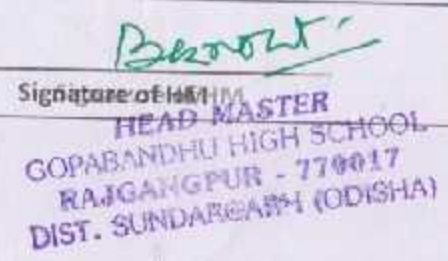 Signature of HM
HEAD MASTER
GOPABANDHU HIGH SCHOOL
RAJGANGPUR - 770017
DIST. SUNDARGARH (ODISHA)